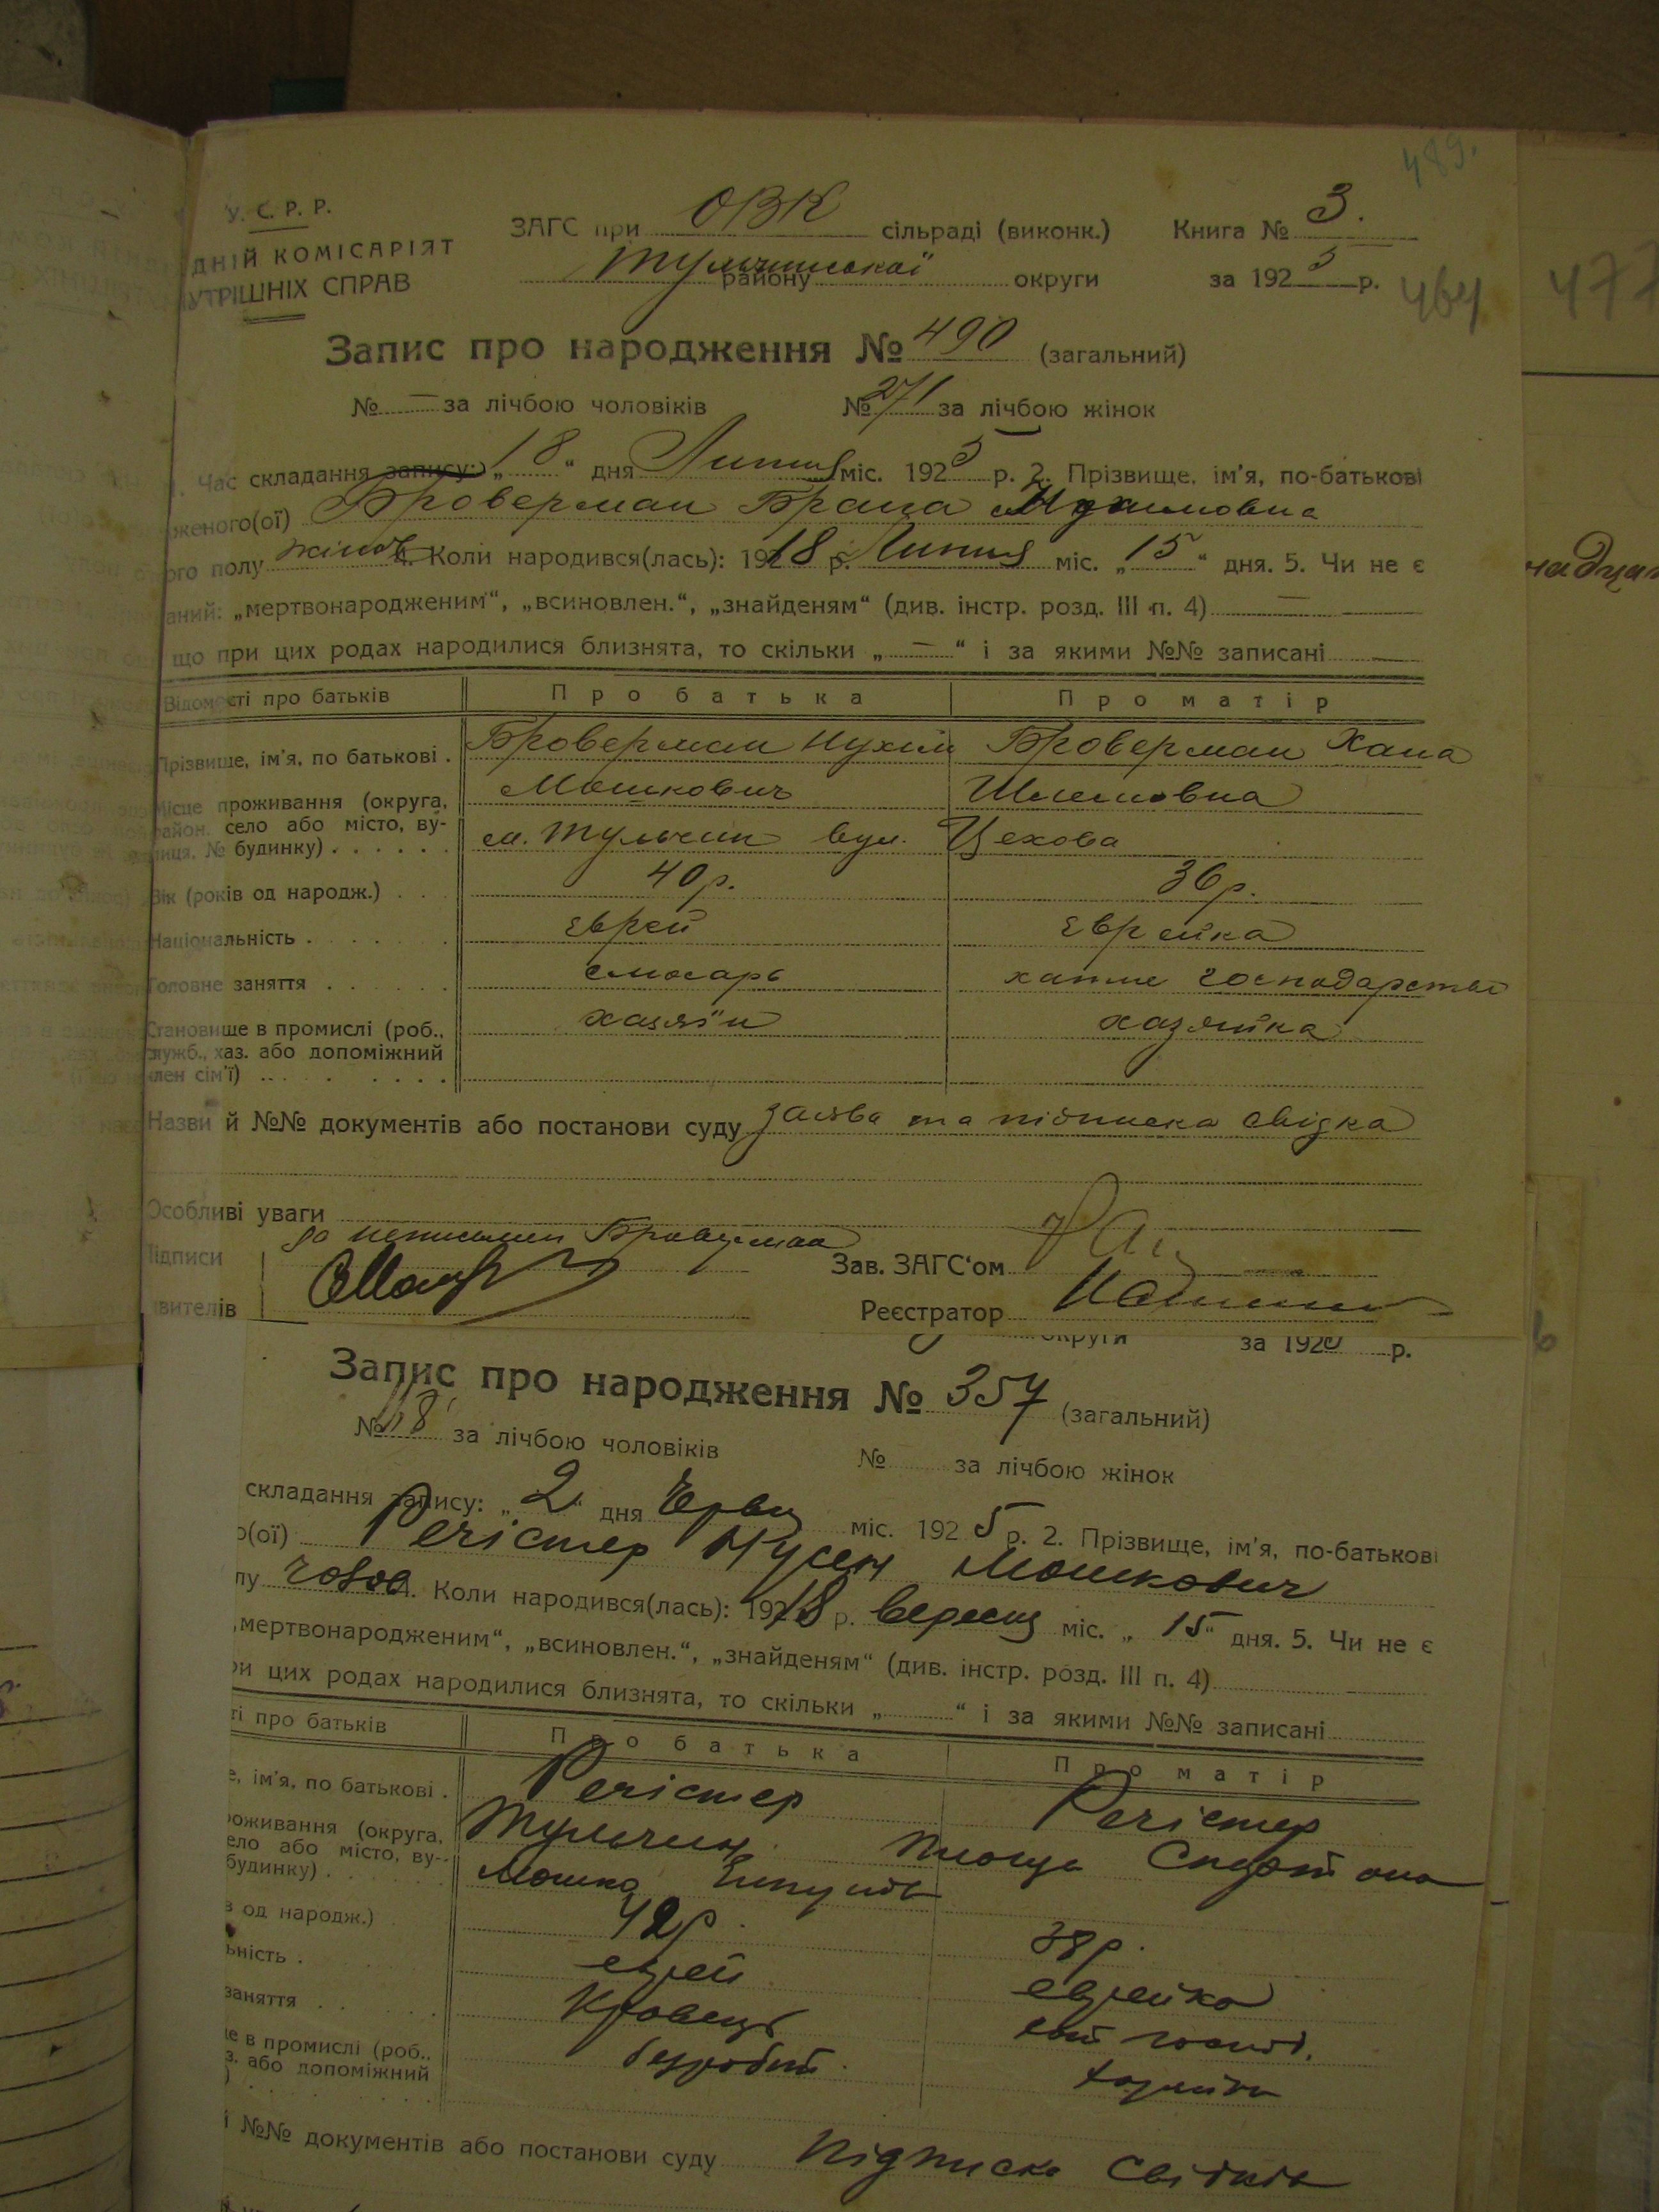 489.
У. С. Р. Р.
ДНІЙ КОМІСАРІЯТ
УТРІШНІХ СПРАВ
ЗАГС при ОВК сільраді (виконк.) Книга № 3.
Тульчинської району округи за 1925 р.
464
477
Запис про народження № 490 (загальний)
№ — за лічбою чоловіків № 271 за лічбою жінок
1. Час складання запису: „18“ дня Липня міс. 1925 р. 2. Прізвище, ім'я, по-батькові
женого(ої) Броверман Брана Нухимовна
ого полу жіноч. 4. Коли народився(лась): 1918 р. Липня міс. „15“ дня. 5. Чи не є
аний: „мертвонародженим“, „всиновлен.“, „знайденям“ (див. інстр. розд. III п. 4) —
що при цих родах народилися близнята, то скільки „—“ і за якими №№ записані —
Відомості про батьків Про батька Про матір
Прізвище, ім'я, по батькові . Броверман Нухим Броверман Хана
Мошкович Шлемовна
Місце проживання (округа, район, село або місто, вулиця, № будинку) . . . . . . м. Тульчин вул. Цехова
Вік (років од народж.) . . . 40 р. 36 р.
Національність . . . . . . єврей єврейка
Головне заняття . . . . . . слюсарь хатне господарство
Становище в промислі (роб., служб., хаз. або допоміжний член сім'ї) . . . . . . . хазяїн хазяйка
Назви й №№ документів або постанови суду заява та підписка свідка
Особливі уваги
за неписьмен Броверман
Підписи
явителів
Зав. ЗАГС'ом
Реєстратор
надцат
округи за 192 р.
Запис про народження № 357 (загальний)
№ 18 за лічбою чоловіків № за лічбою жінок
складання запису: „2“ дня Червц міс. 1925 р. 2. Прізвище, ім'я, по-батькові
о(ої) Речістер Нусен Мошкович
лу чолов 4. Коли народився(лась): 1918 р. Вересц міс. „15“ дня. 5. Чи не є
„мертвонародженим“, „всиновлен.“, „знайденям“ (див. інстр. розд. III п. 4)
ри цих родах народилися близнята, то скільки „ “ і за якими №№ записані
ті про батьків Про батька Про матір
е, ім'я, по батькові . Речістер Речістер
роживання (округа, Тульчин Площа
ело або місто, ву-
будинку) . Мошко
в од народж.) 42 р. 38 р.
ьність . єврей єврейка
заняття . . . . . Кравець хат госпд.
е в промислі (роб., безробіт. хазяйка
з. або допоміжний
)
і №№ документів або постанови суду Підписка свідків